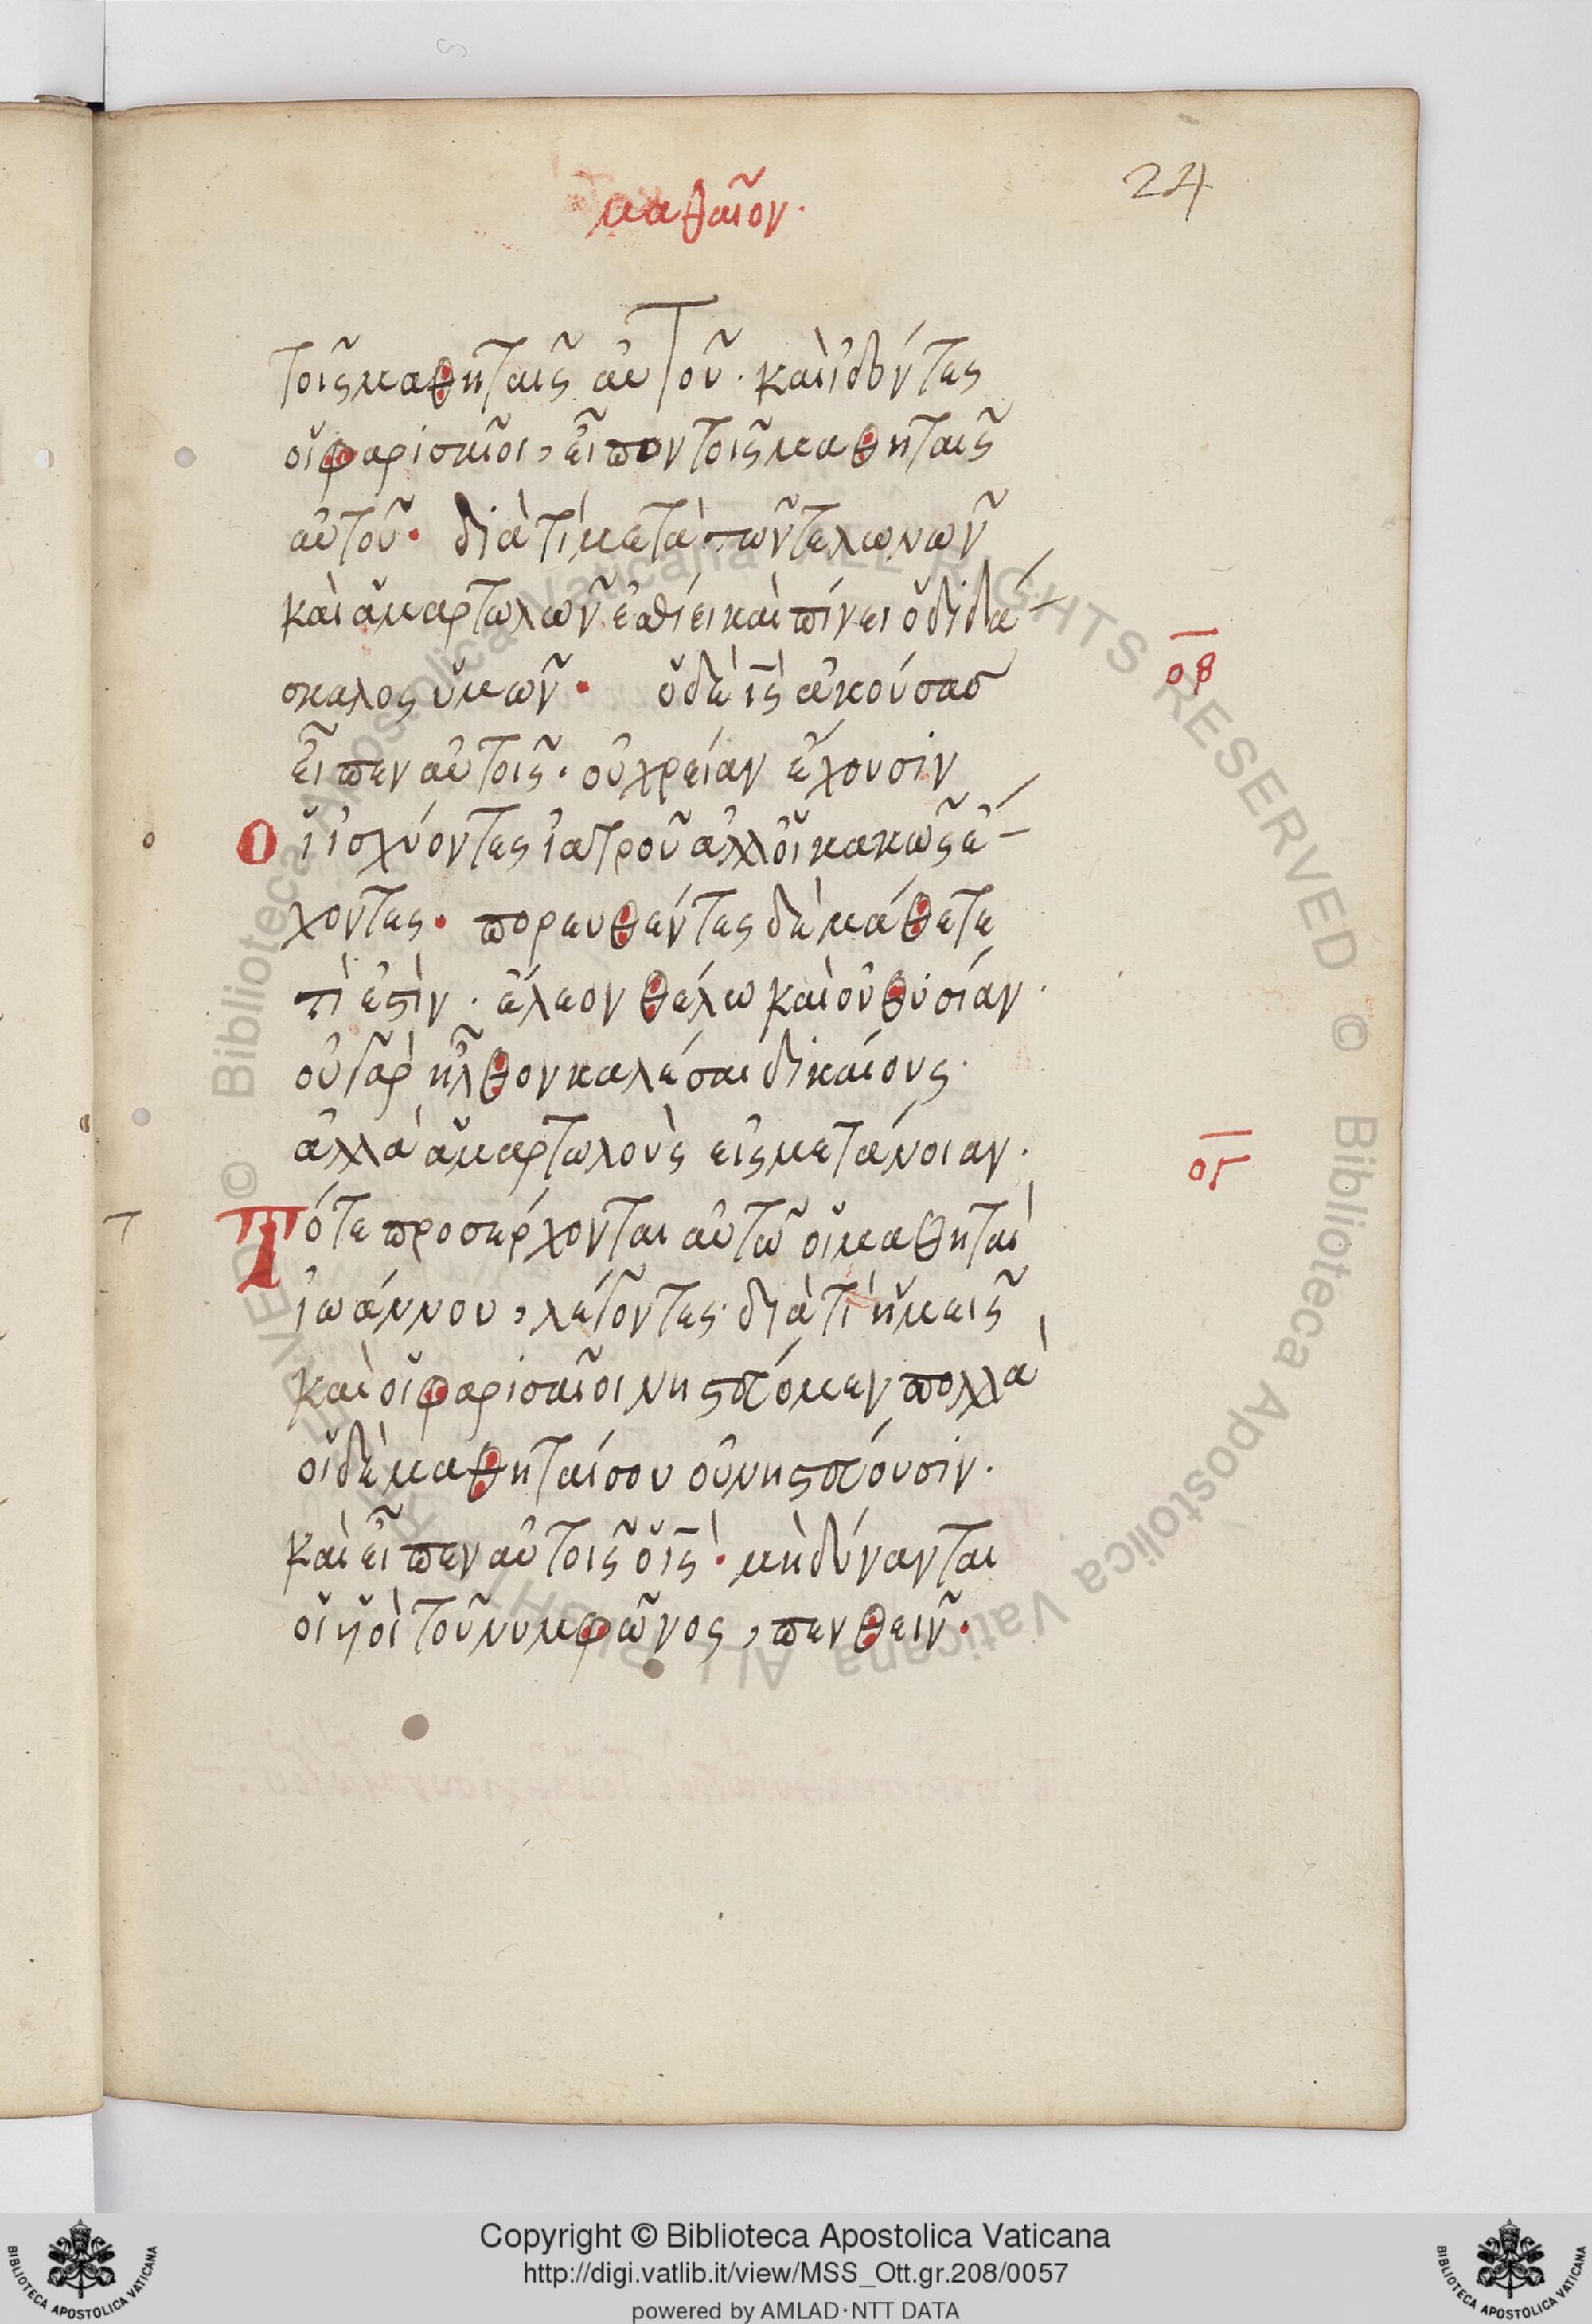 24
μαθαῖον·
τοῖς μαθηταῖς αὐτοῦ· καὶ ἰδόντες
οἱ φαρισαῖοι, εἶπον τοῖς μαθηταῖς
αὐτοῦ· διὰ τί μετὰ τῶν τελωνῶν
καὶ ἁμαρτωλῶν ἐσθίει καὶ πίνει ὁ διδά
σκαλος ὑμῶν· ὁ δὲ ι̅ς̅ ἀκούσας
ο̅β̅
εἶπεν αὐτοῖς· οὐ χρείαν ἔχουσιν
Οἱ ἰσχύοντες ἰατροῦ ἀλλ οἱ κακῶς ἔ
χοντες· πορευθέντες δὲ μάθετε
τὶ ἐστὶν· ἔλεον θέλω καὶ οὐ θυσίαν·
οὐ γὰρ ἦλθον καλέσαι δικαίους·
ἀλλὰ ἁμαρτωλοὺς εἰς μετάνοιαν·
ο̅γ̅
τ
Τότε προσέρχονται αὐτῶ οἱ μαθηταὶ
ἰωάννου, λέγοντες· διὰ τί ἡμεῖς
καὶ οἱ φαρισαῖοι νηστεύομεν πολλὰ
οἱ δὲ μαθηταί σου οὐ νηστεύουσιν·
καὶ εἶπεν αὐτοῖς ὁ ι̅ς̅· μὴ δύνανται
οἱ υἱοὶ τοῦ νυμφῶνος, πενθεῖν·
Copyright © Biblioteca Apostolica Vaticana
http://digi.vatlib.it/view/MSS_Ott.gr.208/0057
powered by AMLAD·NTT DATA
BIBLIOTECA APOSTOLICA VATICANA
BIBLIOTECA APOSTOLICA VATICANA
© Biblioteca Apostolica Vaticana ALL RIGHTS RESERVED © Biblioteca Apostolica Vaticana ALL RIGHTS RESERVED